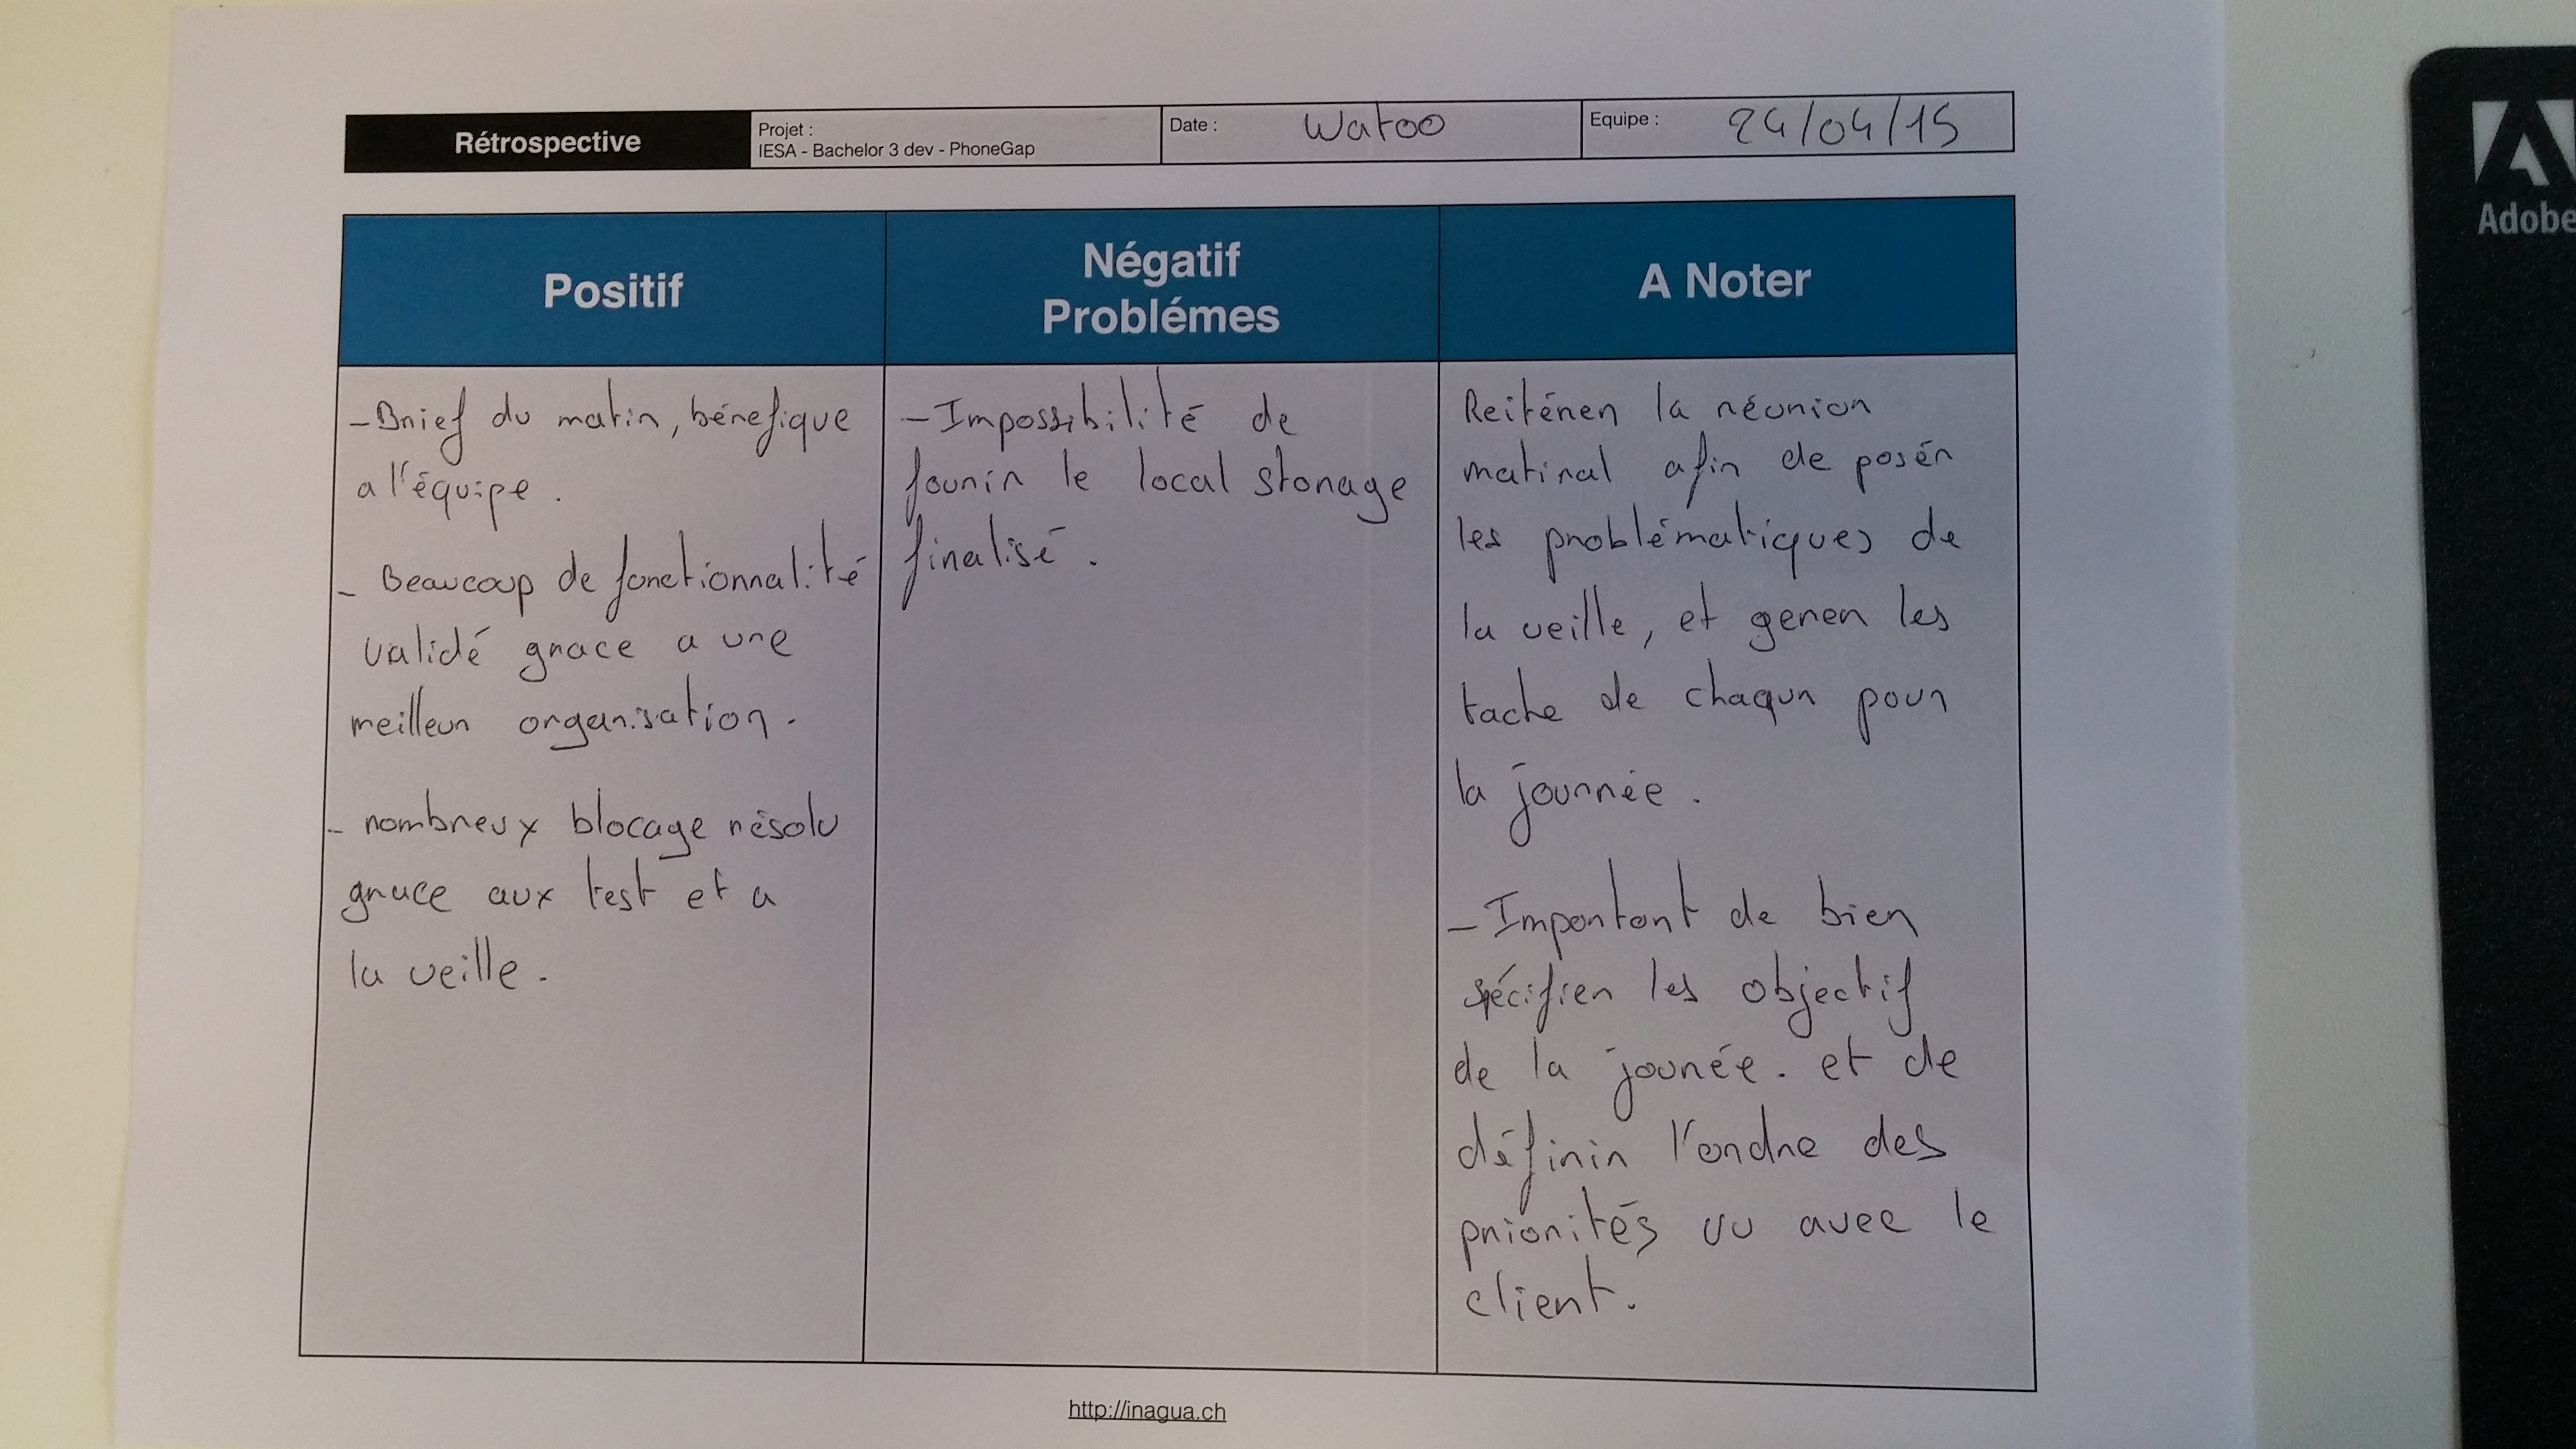 Rétrospective
Projet :
IESA - Bachelor 3 dev - PhoneGap
Date :
Watoo
Equipe :
24/04/15
Positif
- Brief du matin, bénéfique
a l'équipe.
- Beaucoup de fonctionnalité
validé grace a une
meilleur organisation.
- nombreux blocage résolu
grace aux test et a
la veille.
Négatif
Problémes
- Impossibilité de
founir le local storage
finalisé.
A Noter
Reitérer la réunion
matinal afin de posér
les problématiques de
la veille, et gerer les
tache de chaqun pour
la journée.
- Important de bien
spécifier les objectif
de la jounée. et de
définir l'ordre des
priorités vu avec le
client.
http://inagua.ch
Adobe